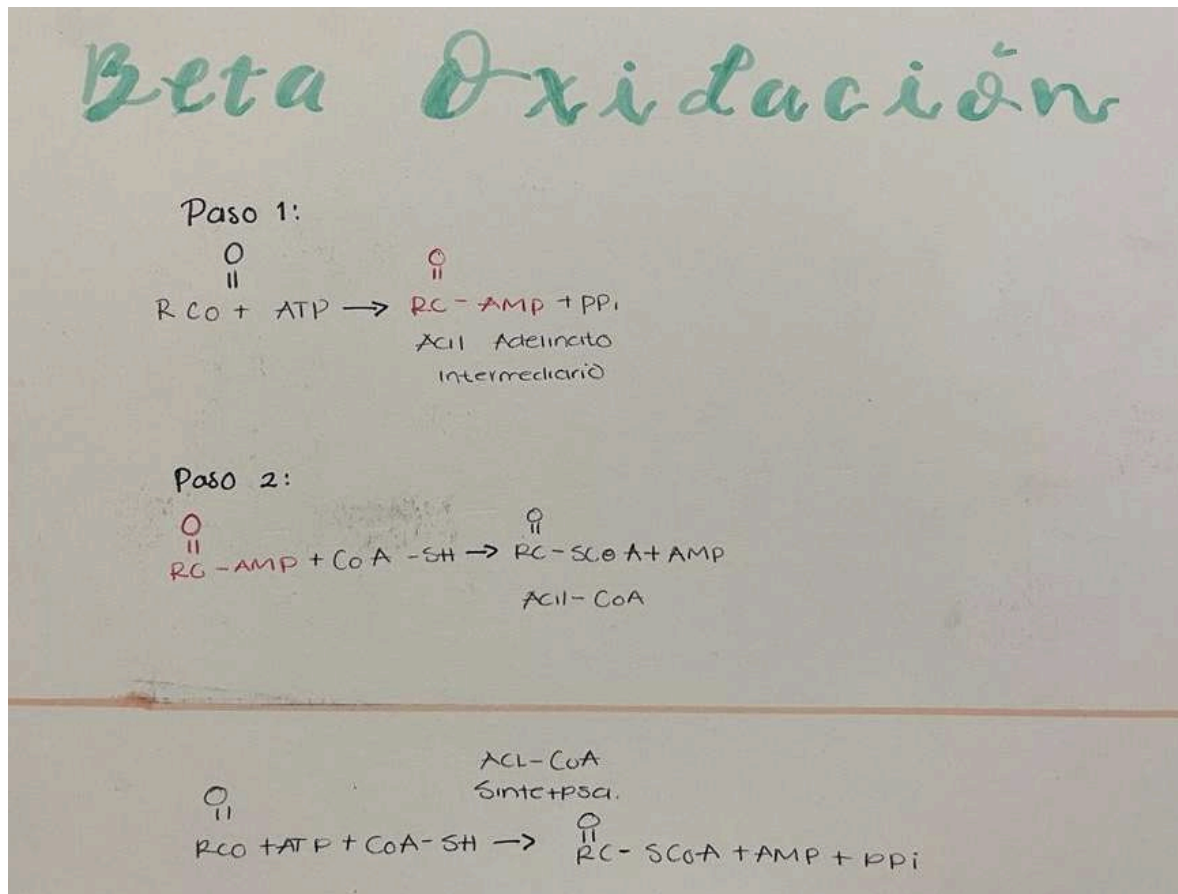 Beta Oxidación
Paso 1:
O
||
RCO + ATP → RC - AMP + PPi
O
||
Acil Adelincito
Intermediario
Paso 2:
O
||
RC - AMP + CoA - SH → RC - SCoA + AMP
O
||
Acil - CoA
ACL - CoA
Sintetpsa.
O
||
RCO + ATP + CoA - SH → RC - SCoA + AMP + PPi
O
||